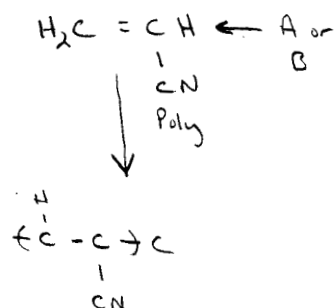 H₂C = C H ← A or
B
CN
Poly
H
( C - C ) C
CN